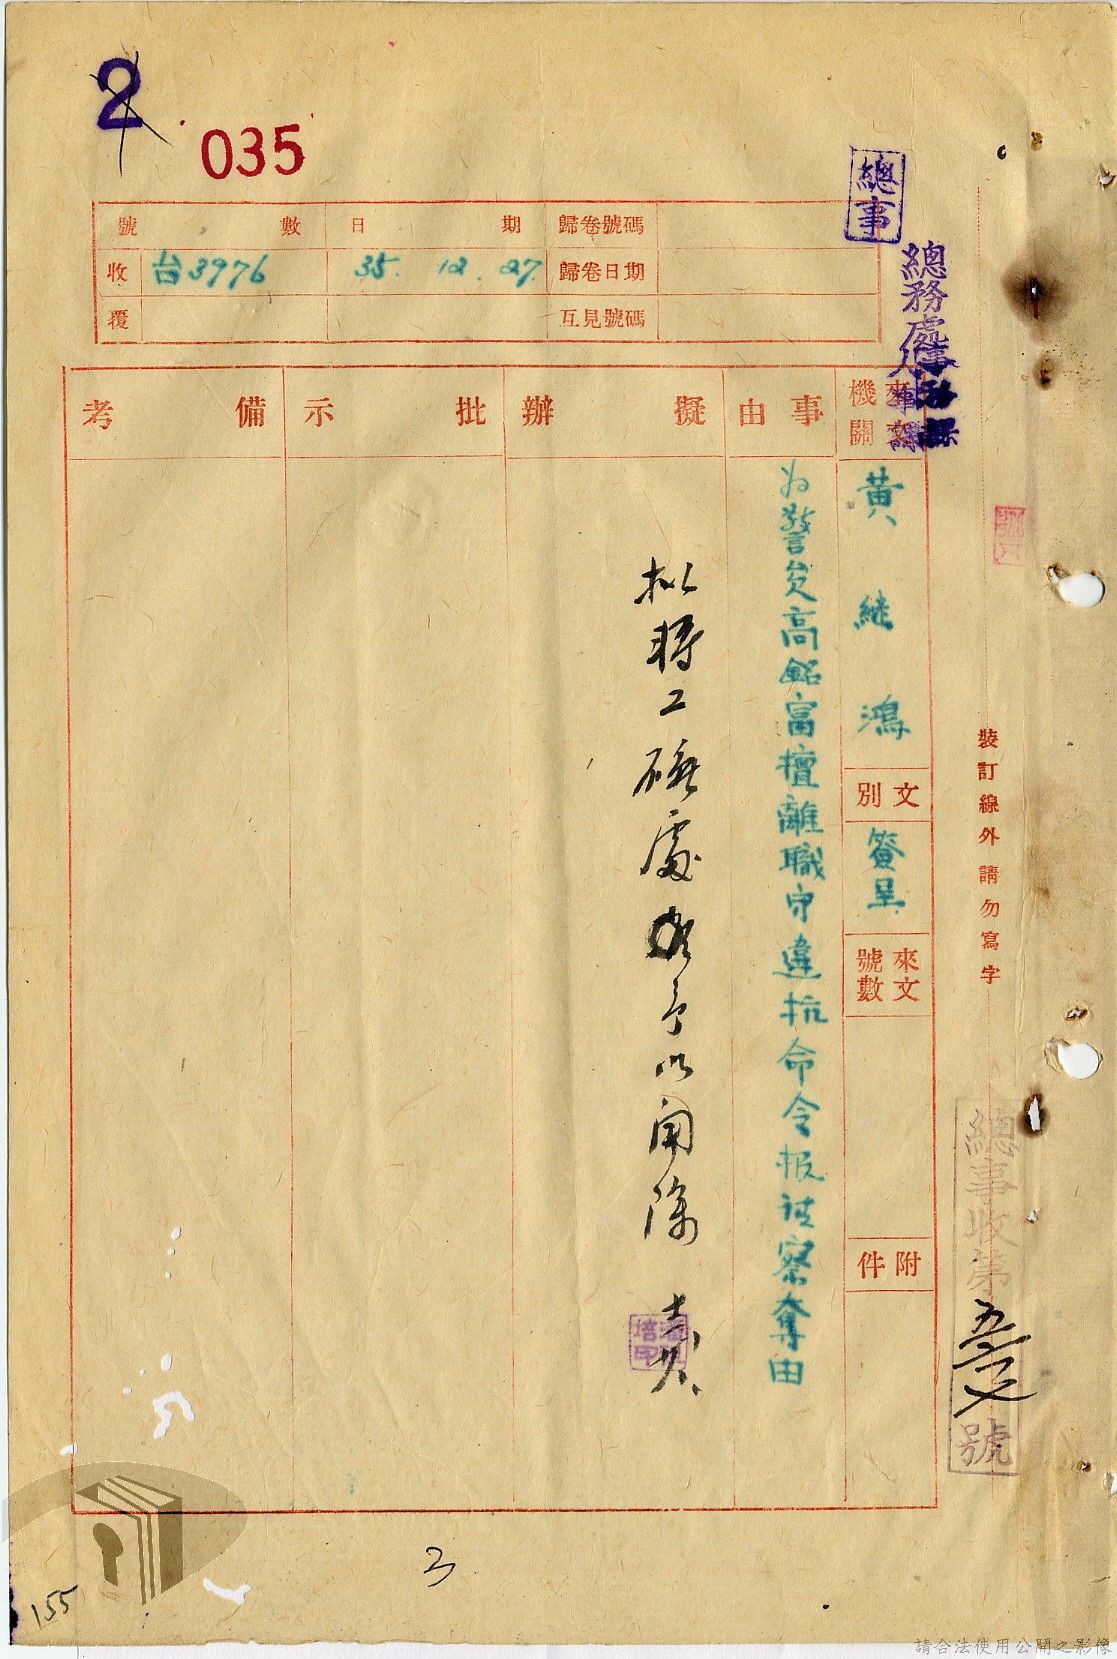 2
035
總事
號數 日期 歸卷號碼
收 台3976 35. 12. 27. 歸卷日期
覆 互見號碼
總務處
裝訂線外請勿寫字
來文機關
黃繼鴻
文別
簽呈
來文號數
附件
事由
為警員高銘富擅離職守違抗命令報請察奪由
擬辦
擬將工礦處 予以開除
批示
備考
總事收第 號
3
155
請合法使用公開之影像